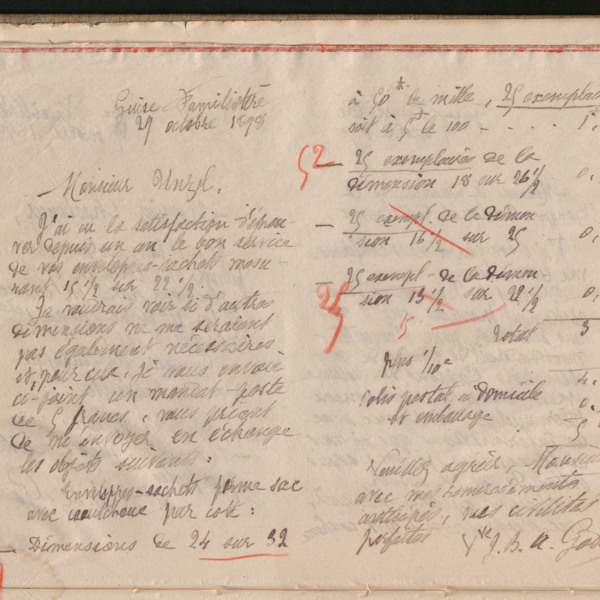 Guise Familistère
29 octobre 1898
Monsieur Unzel,
J'ai eu la satisfaction d'éprou-
ver depuis un an le bon service
de vos enveloppes-sachets mesu-
rant 15 1/2 sur 22 1/2.
Je voudrais voir si d'autres
dimensions ne me seraient
pas également nécessaires
et, pour cela, je vous envoie
ci-joint un mandat-poste
de 5 francs, vous priant
de m'envoyer en échange
les objets suivants:
Enveloppes-sachets forme sac
avec caoutchouc par côté:
— Dimensions de 24 sur 32
à 50 f le mille, 25 exemplai
soit à 5 f le 100 - . . . 1,
52 — 25 exemplaires de la
dimension 18 sur 26 1/2 0,
— 25 exempl. de la dimen-
sion 16 1/2 sur 25 0,
— 25 exempl. de la dimen-
sion 13 1/2 sur 22 1/2 0,
15
Total 3
plus 1/10e
4,
Colis postal à domicile 0,
et emballage 5
Veuillez agréer, Monsieu
avec mes remerciements
anticipés, mes civilités
parfaites Vve J. B. A. Godi